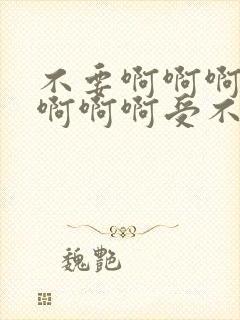 不要啊啊啊
啊啊啊受不
魏艷